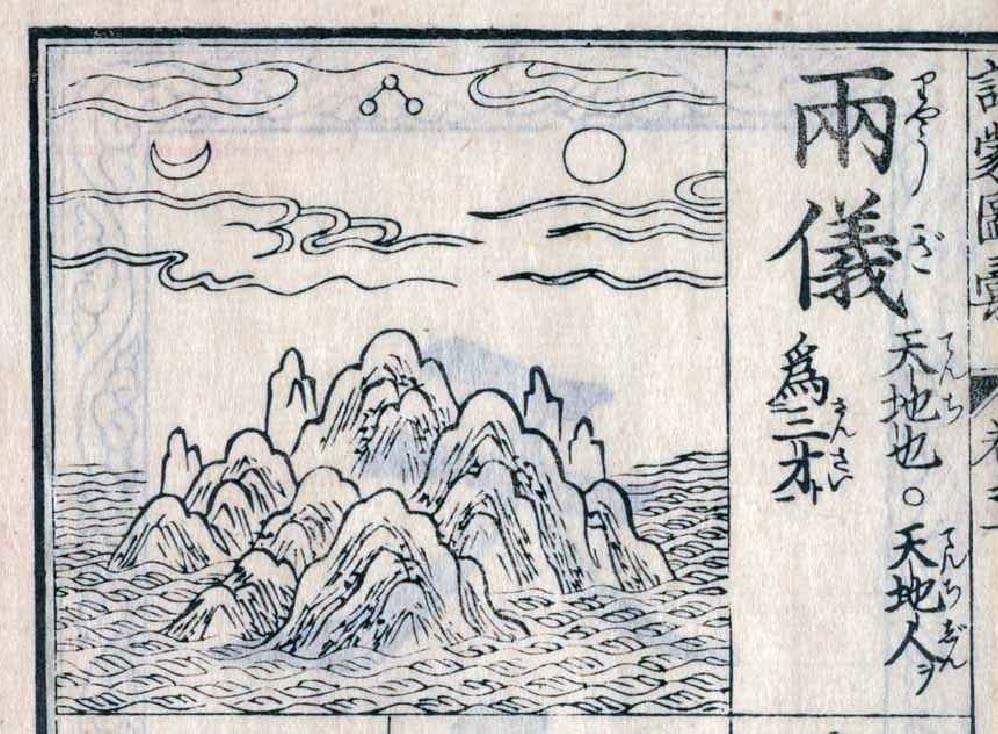 訓蒙圖彙
卷之一
兩儀
りやうぎ
天地也。天地人ヲ
てんち
てんちじん
爲三才ト
さんさい